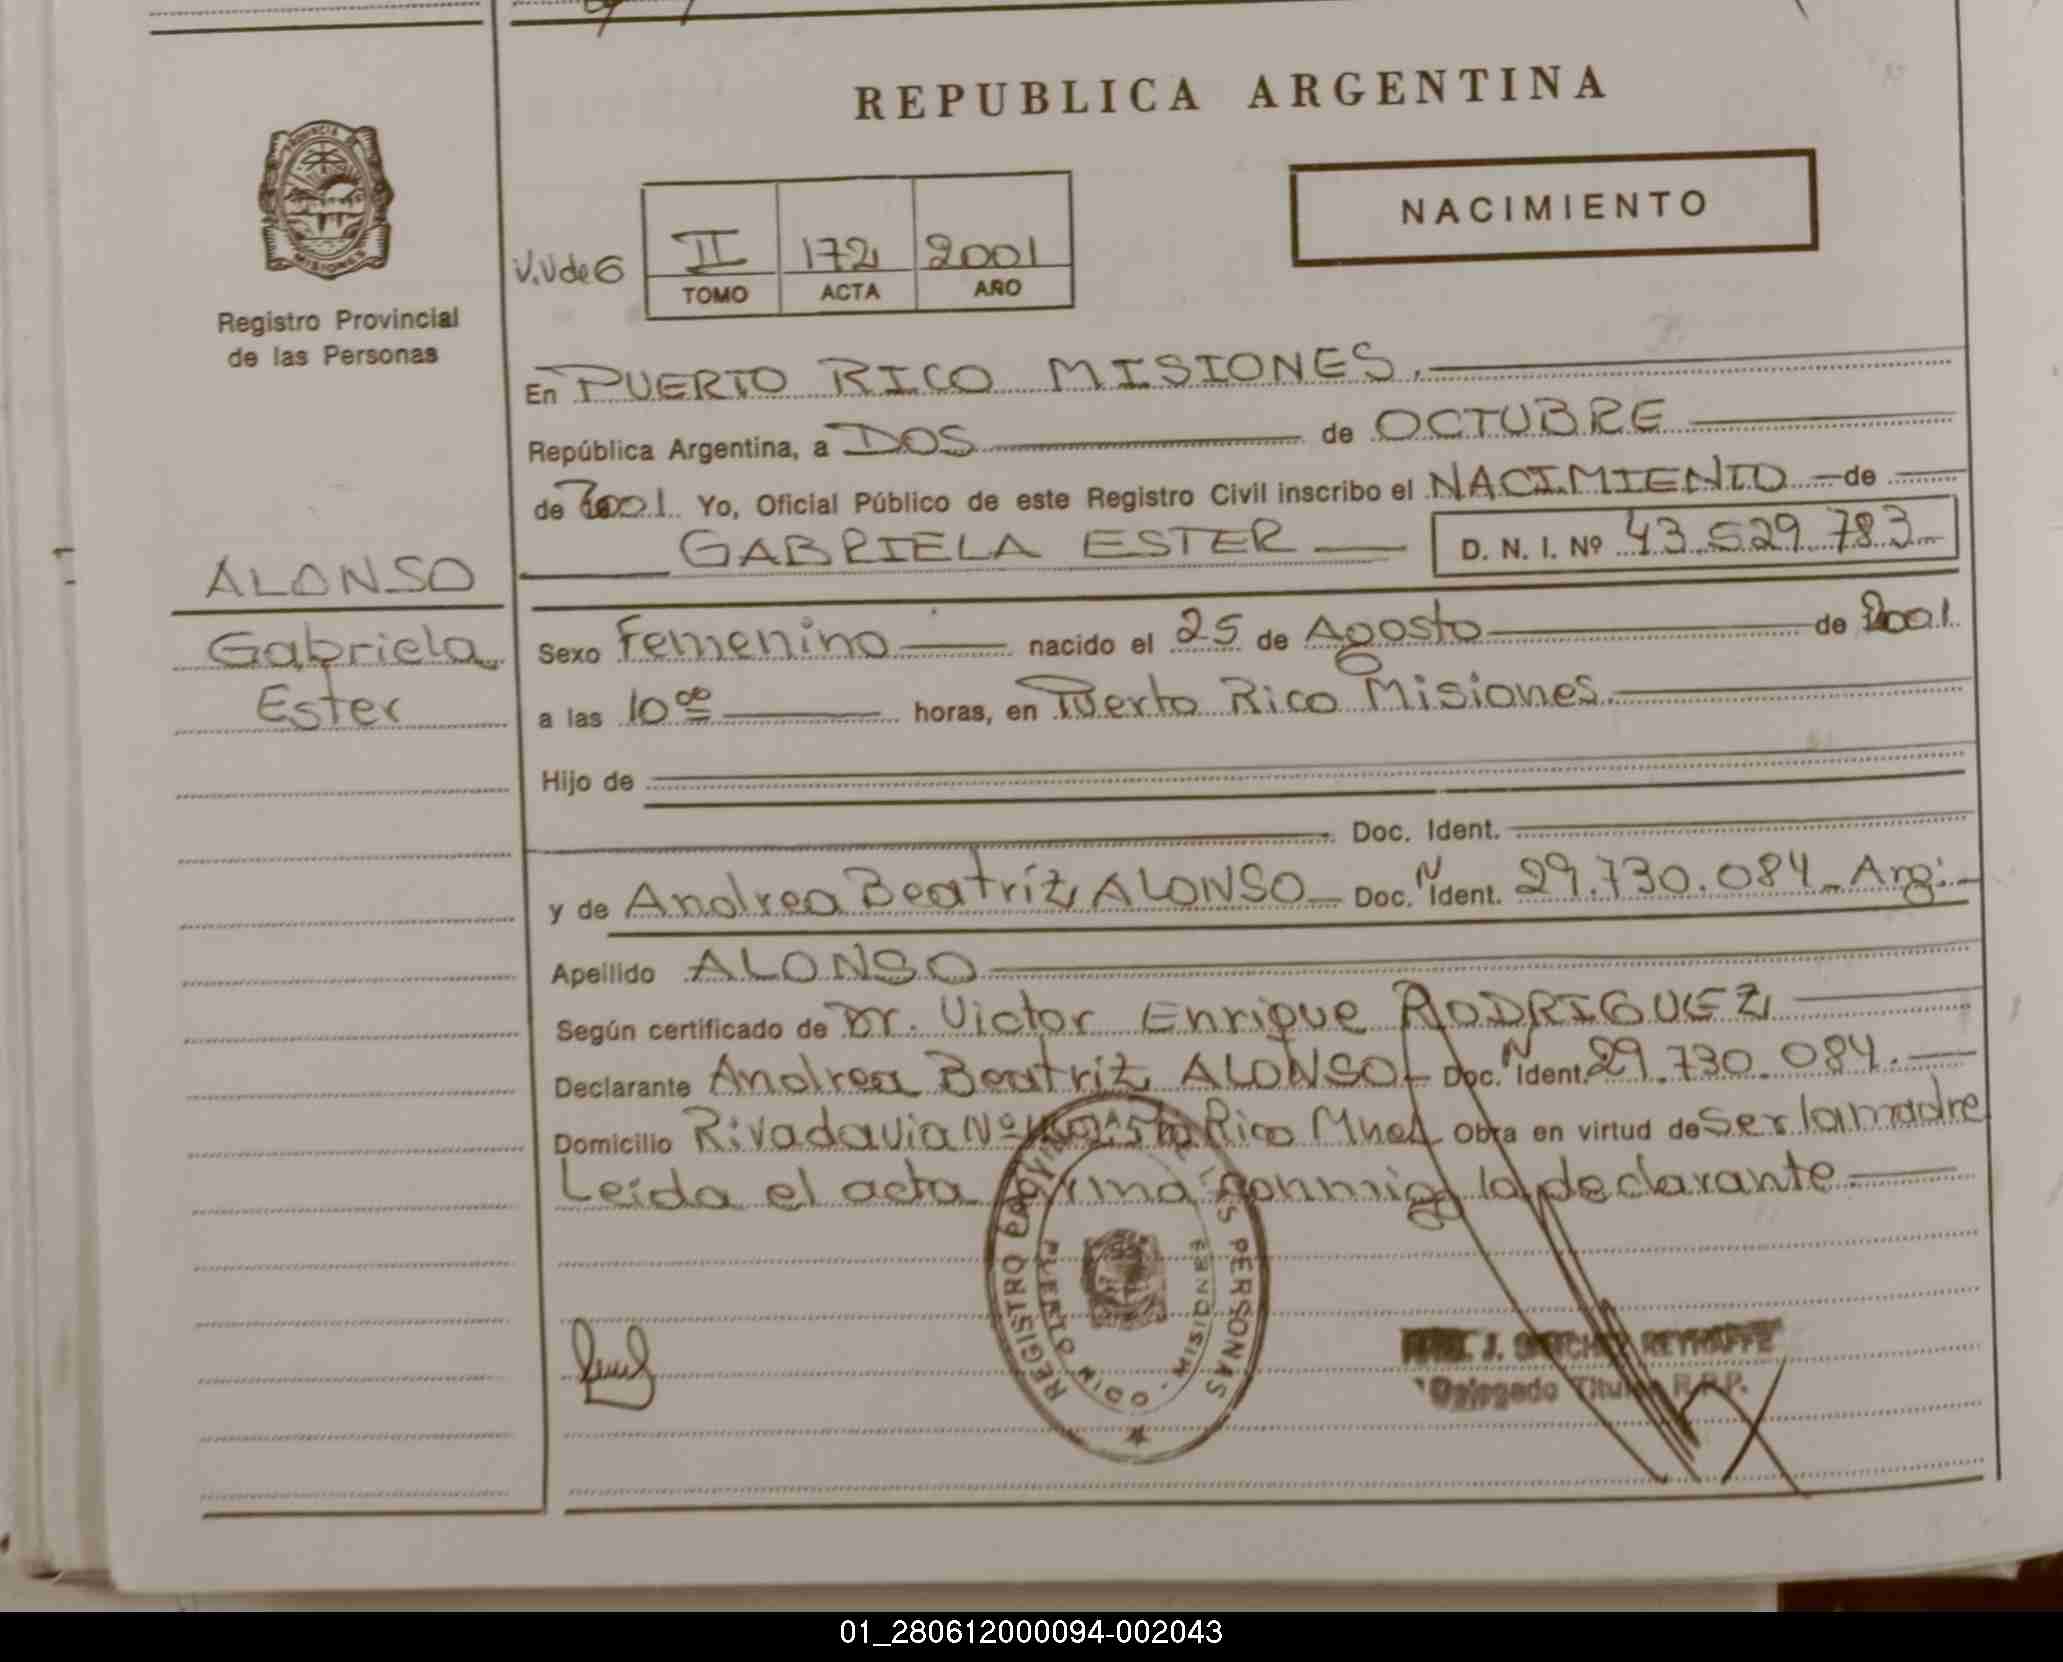 REPUBLICA ARGENTINA
NACIMIENTO
PROVINCIA DE
MISIONES
Registro Provincial
de las Personas
V.V de 6
II 172 2001
TOMO ACTA AÑO
En PUERTO RICO MISIONES.
República Argentina, a DOS de OCTUBRE
de 2001. Yo, Oficial Público de este Registro Civil inscribo el NACIMIENTO de
GABRIELA ESTER D. N. I. Nº 43.529.783
ALONSO
Gabriela
Ester
Sexo Femenino nacido el 25 de Agosto de 2001.
a las 10 00 horas, en Puerto Rico Misiones.
Hijo de
Doc. Ident.
y de Andrea Beatriz ALONSO Doc. N Ident. 29.730.084 Arg.
Apellido ALONSO
Según certificado de Dr. Victor Enrique RODRIGUEZ
Declarante Andrea Beatriz ALONSO Doc. N Ident. 29.730.084.
Domicilio Rivadavia Nº Pto Rico Mnes Obra en virtud de Ser la madre
Leída el acta firma conmigo la declarante.
REGISTRO PERSONAS
PUERTO RICO - MISIONES
J. REYNAFFE
Delegado Titular R.P.P.
01_280612000094-002043